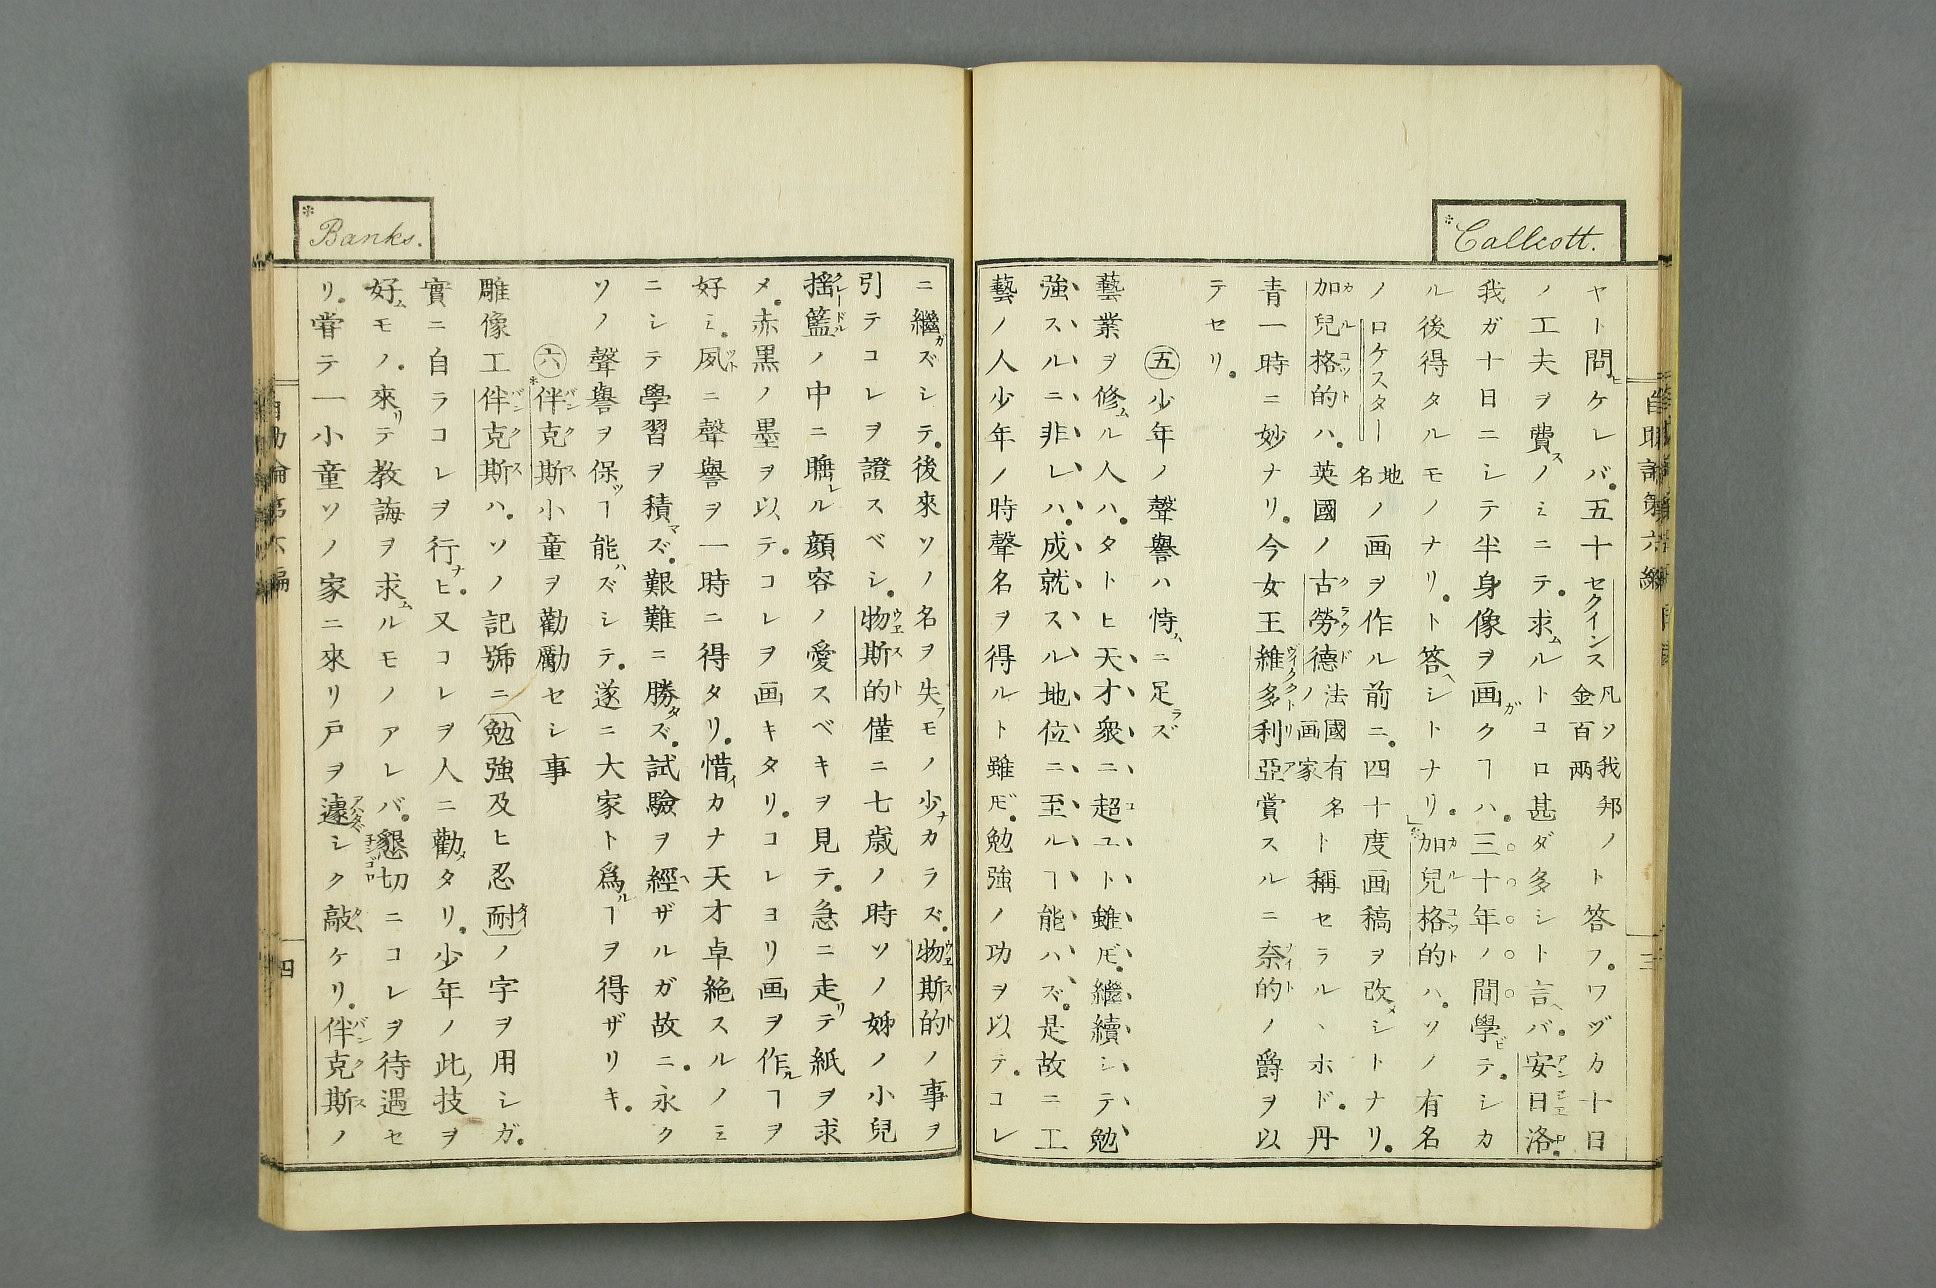 *Callcott.
ヤト問ヒケレバ。五十セクインス凡ソ我邦ノ金百両ト答フ。ワヅカ十日
ノ工夫ヲ費スノミニテ。求ムルトコロ甚ダ多シト言ヘバ。安日洛。
我ガ十日ニシテ半身像ヲ画ガクヿハ。三十年ノ間學ビテ。シカ
ル後得タルモノナリ。ト答ヘシトナリ。」*加兒格的ハ。ソノ有名
ノロケスター地名ノ画ヲ作ル前ニ。四十度画稿ヲ改メシトナリ。
加兒格的ハ。英國ノ古勞德法國有名ノ画家ト稱セラルヽホド。丹
青一時ニ妙ナリ。今女王維多利亞賞スルニ奈的ノ爵ヲ以
テセリ。
㊄少年ノ聲譽ハ恃ムニ足ラズ
藝業ヲ修ムル人ハ。タトヒ天才衆ニ超ユト雖𪜈。繼續シテ勉
強スルニ非レハ。成就スル地位ニ至ルヿ能ハズ。是故ニ工
藝ノ人少年ノ時聲名ヲ得ルト雖𪜈。勉強ノ功ヲ以テ。コレ
自助論第六編
三
*Banks.
ニ繼ガズシテ。後來ソノ名ヲ失フモノ少ナカラズ。物斯的ノ事ヲ
引テコレヲ證スベシ。物斯的僅ニ七歳ノ時ソノ姊ノ小兒
搖籃ノ中ニ睡レル顔容ノ愛スベキヲ見テ。急ニ走リテ紙ヲ求
メ。赤黒ノ墨ヲ以テ。コレヲ画キタリ。コレヨリ画ヲ作ルヿヲ
好ミ。夙ニ聲譽ヲ一時ニ得タリ。惜イカナ天才卓絶スルノミ
ニシテ學習ヲ積マズ。艱難ニ勝タズ。試驗ヲ經ヘザルガ故ニ。永ク
ソノ聲譽ヲ保ツヿ能ハズシテ。遂ニ大家ト爲ルヿヲ得ザリキ。
㊅*伴克斯小童ヲ勸勵セシ事
雕像工伴克斯ハ。ソノ記號ニ〔勉強及ヒ忍耐〕ノ字ヲ用シガ。
實ニ自ラコレヲ行ナヒ。又コレヲ人ニ勸メタリ。少年ノ此ノ技ヲ
好ムモノ。來リテ教誨ヲ求ムルモノアレバ。懇切ニコレヲ待遇セ
リ。甞テ一小童ソノ家ニ來リ戸ヲ遽シク敲ケリ。伴克斯ノ
自助論第六編
四